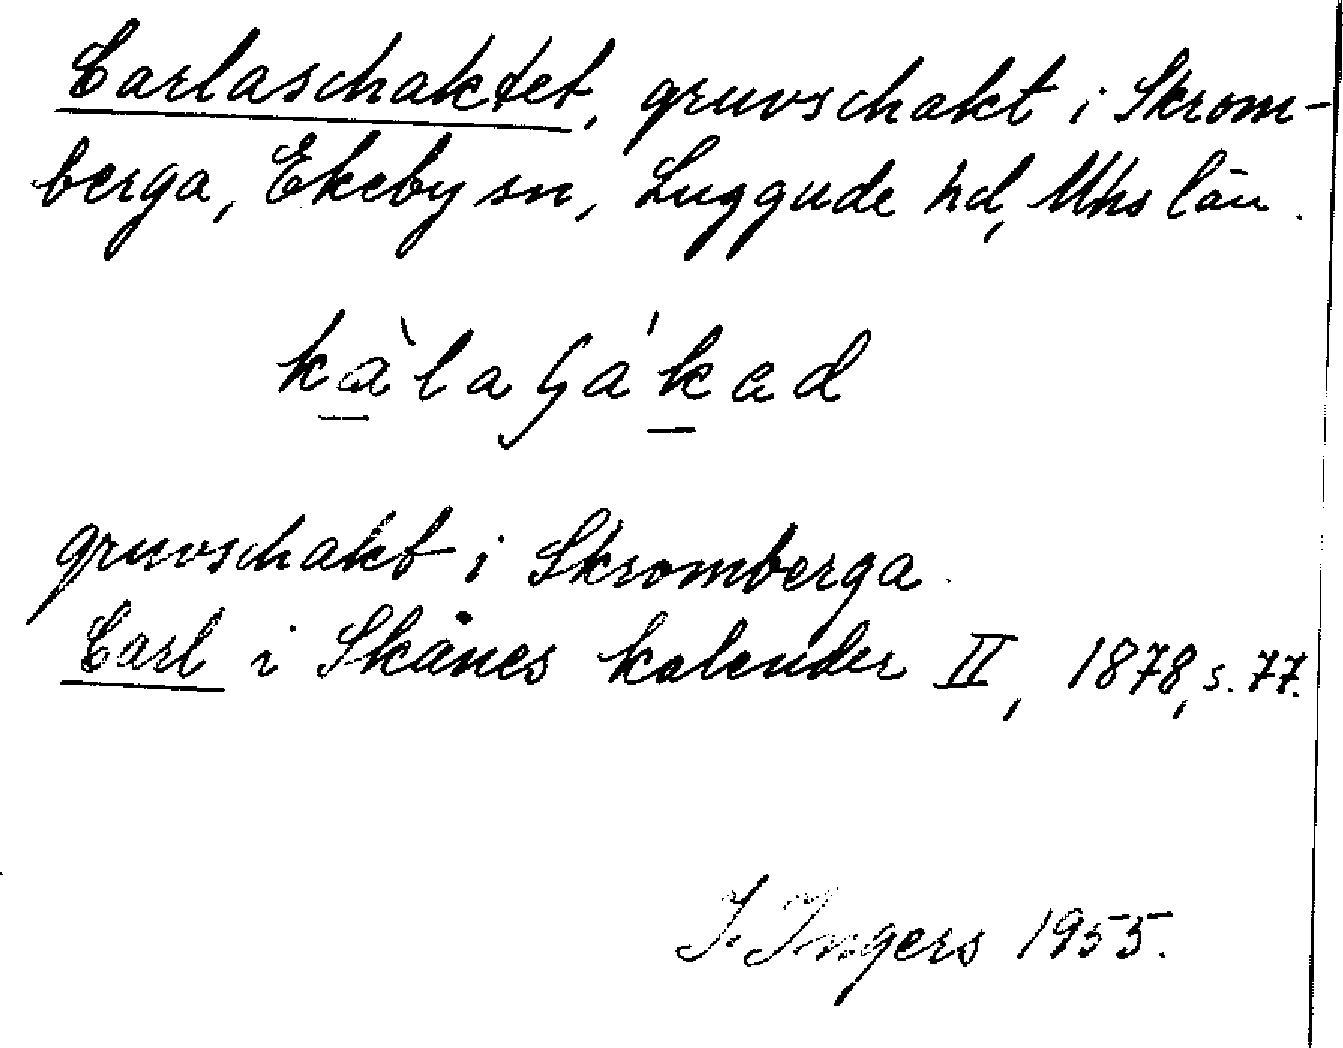 Carlaschaktet, gruvschakt i Skrom-
berga, Ekeby sn, Luggude hd, Mhs län.
gruvschakt i Skromberga.
Carl i Skånes kalender II, 1878, s. 77.
I. Ingers 1955.